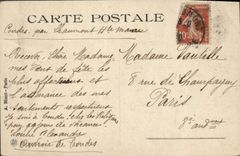 CARTE POSTALE
Condes, par Chaumont Hte Marne
Recevez, Chère Madame,
mes vœux de fête les
plus affectueux et
l'assurance de mes
sentiments respectueux
Je suis à Condes
Louise Alexandre
Environs de Condes
Madame Vautelle
8 rue de Champagny
Paris